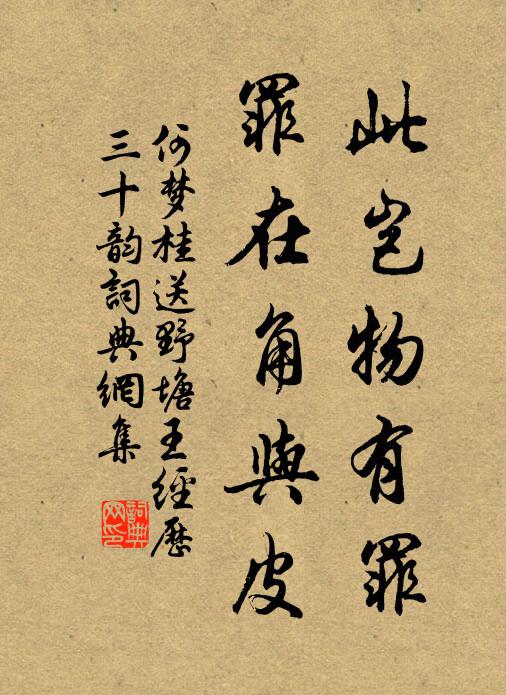 此岂物有罪
罪在角與皮
何梦桂送野塘王經歷
三十韵詞典網集
詞典
网印